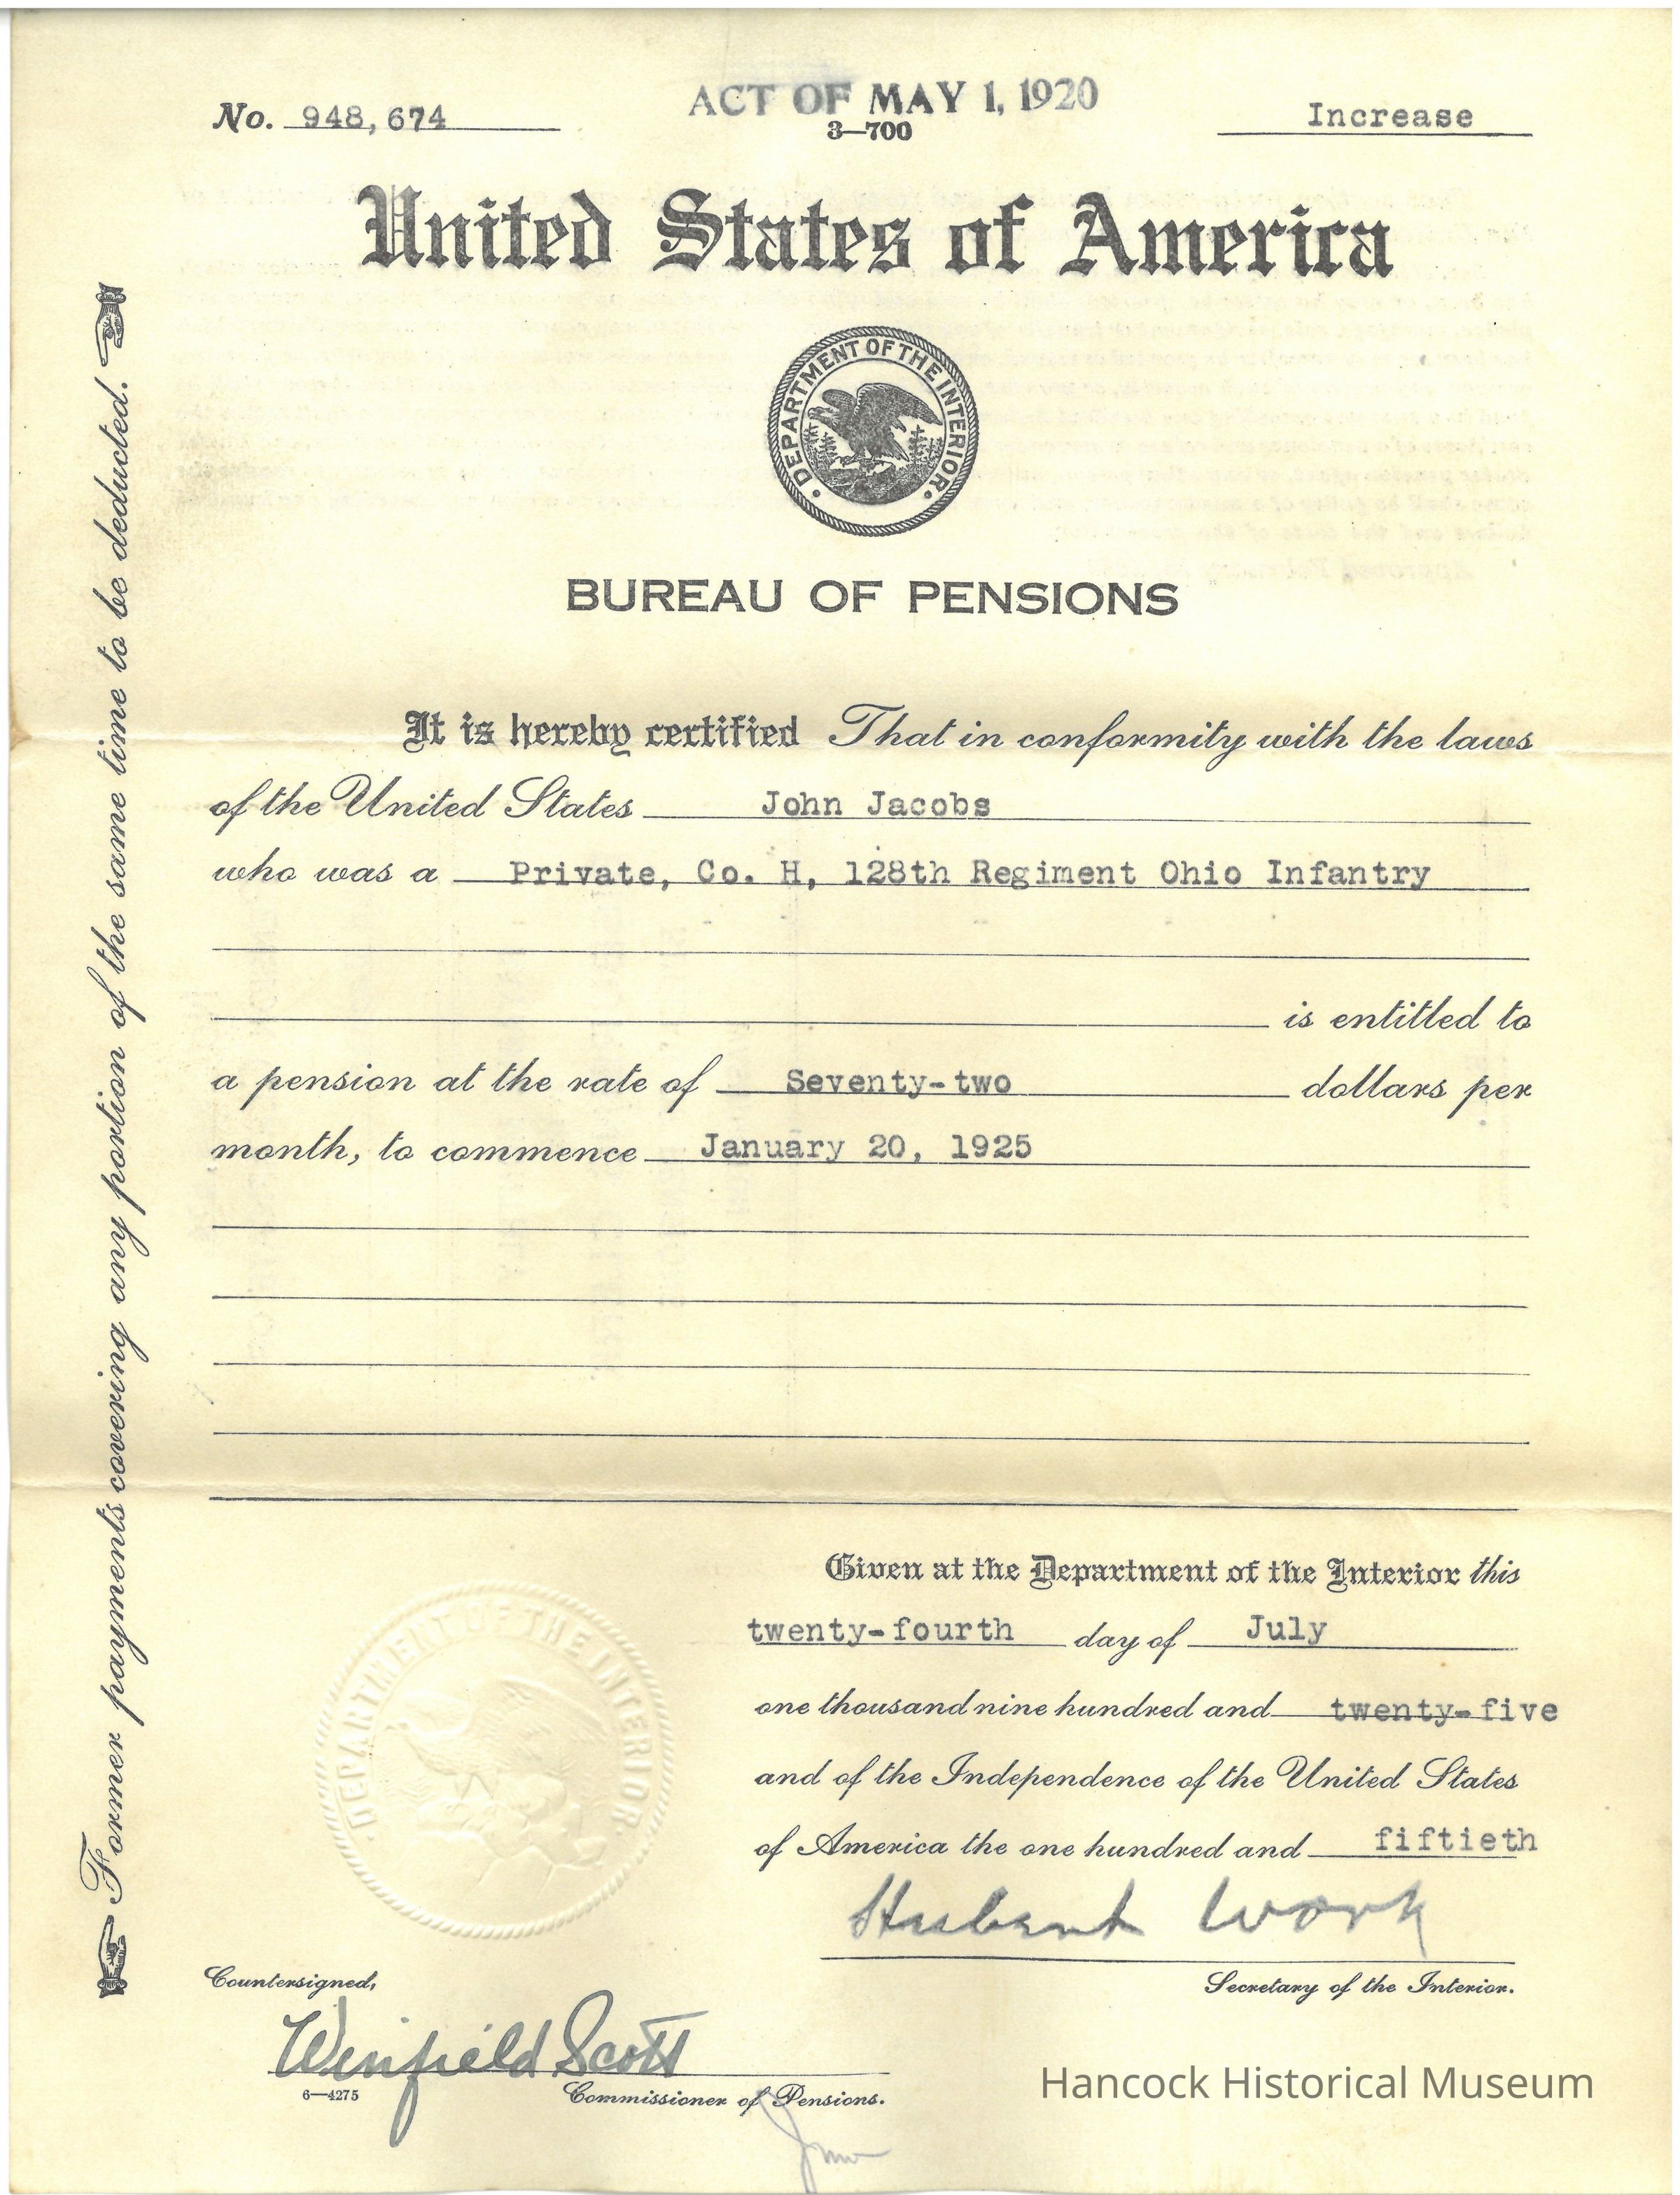 No. 948,674
ACT OF MAY 1, 1920
3—700
Increase
United States of America
DEPARTMENT OF THE INTERIOR
BUREAU OF PENSIONS
It is hereby certified That in conformity with the laws
of the United States John Jacobs
who was a Private, Co. H, 128th Regiment Ohio Infantry
is entitled to
a pension at the rate of Seventy-two dollars per
month, to commence January 20, 1925
Former payments covering any portion of the same time to be deducted.
Given at the Department of the Interior this
twenty-fourth day of July
one thousand nine hundred and twenty-five
and of the Independence of the United States
of America the one hundred and fiftieth
DEPARTMENT OF THE INTERIOR
Hubert Work
Secretary of the Interior.
Countersigned,
Winfield Scott
6—4275
Commissioner of Pensions.
Hancock Historical Museum